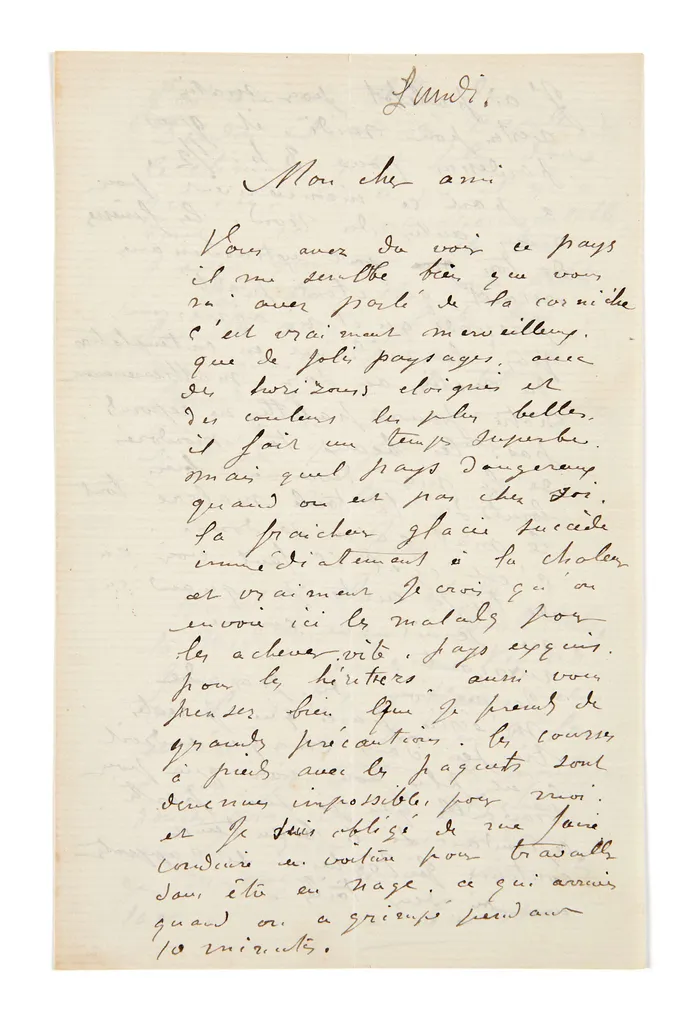 Lundi.
Mon cher ami
Vous avez du voir ce pays
il me semble bien que vous
m'avez parlé de la corniche
c'est vraiment merveilleux.
que de jolis paysages, avec
des horizons eloignés et
des couleurs les plus belles.
il fait un temps superbe.
mais quel pays dangereux
quand on est pas chez soi.
la fraicheur glaciale succède
immédiatement à la chaleur
et vraiment je crois qu'on
envoie ici les malades pour
les achever vite. pays exquis.
pour les héritiers aussi vous
pensez bien que je prends de
grandes précautions. les courses
à pieds avec les paquets sont
devenues impossibles pour moi.
et je suis obligé de me faire
conduire en voiture pour travailler
sans être en nage. ce qui arrive
quand on a grimpé pendant
10 minutes.